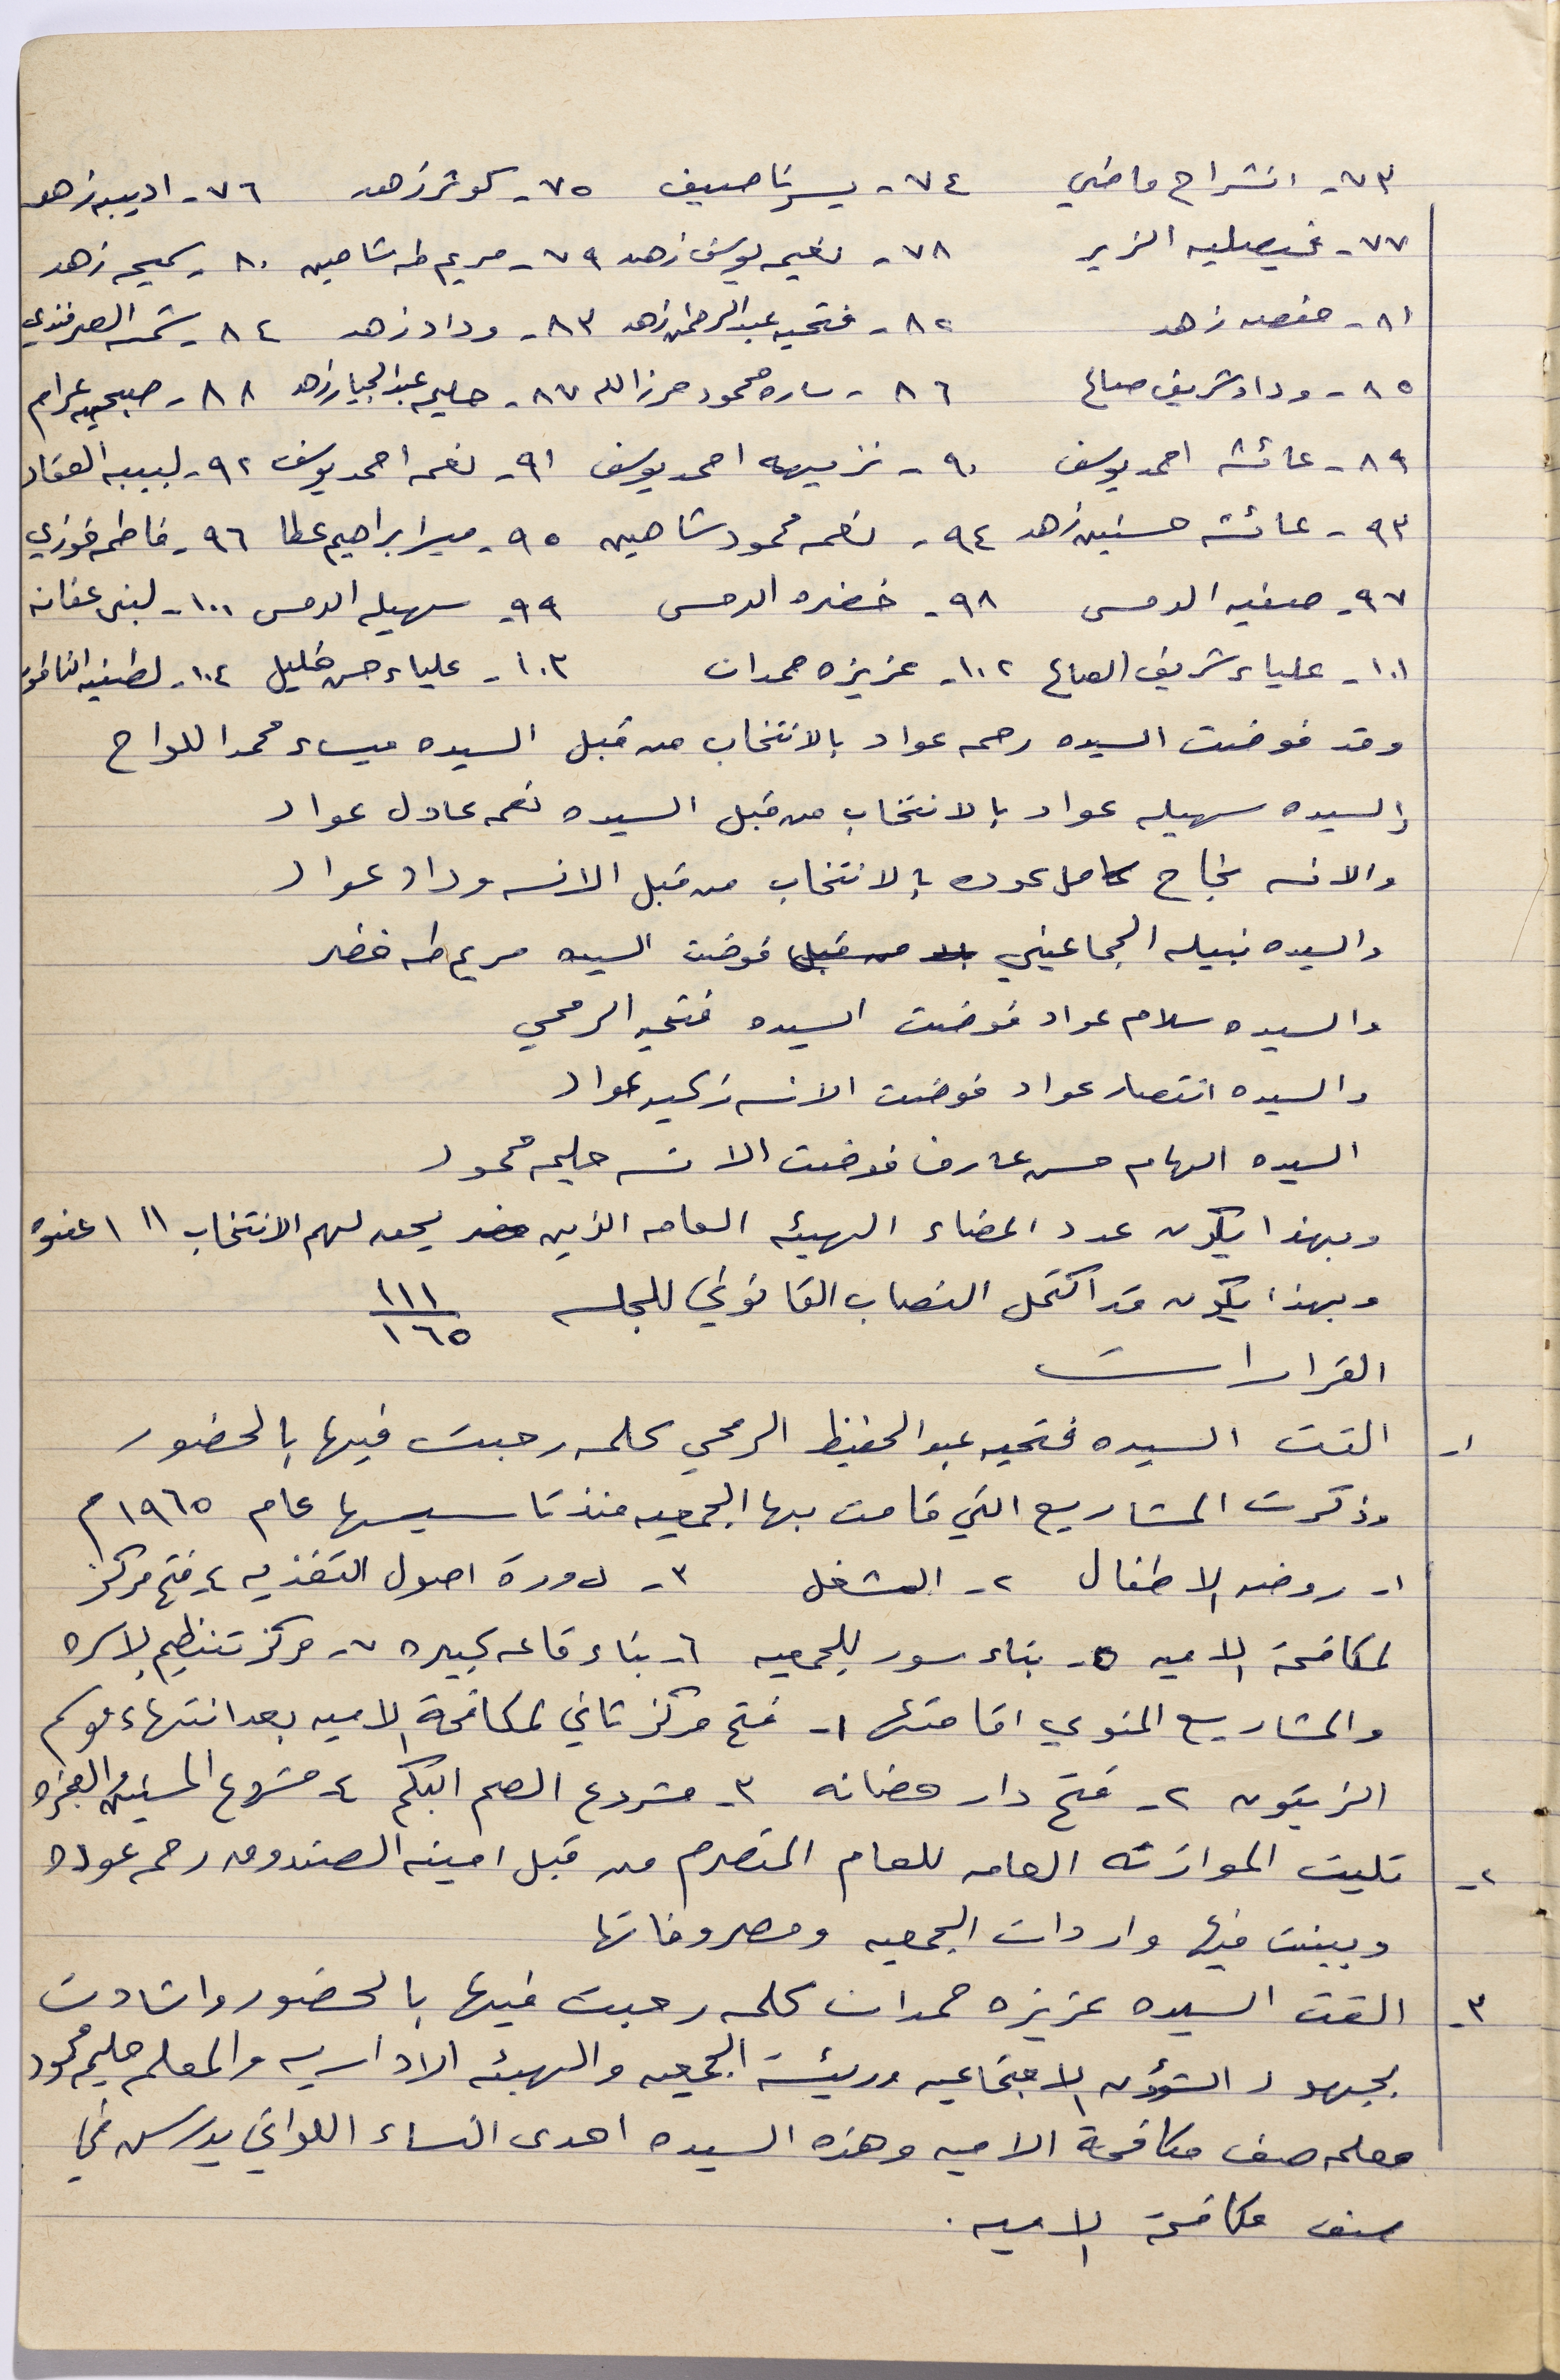 ٧٣- انشراح ماضي ٧٤- يسرى ناصيف ٧٥- كوثر زهد ٧٦- اديبه زهد
٧٧- فيصليه الزير ٧٨- نعيمه يوسف زهد ٧٩- مريم طه شاهين ٨٠- سميحه زهد
٨١- حفصه زهد ٨٢- فتحيه عبد الرحمن زهد ٨٣- وداد زهد ٨٤- شمه الصرفندي
٨٥- وداد شريف صالح ٨٦- ساره محمود حرز الله ٨٧- حليمه عبد الجبار زهد ٨٨- صبحيه عرام
٨٩- عائشه احمد يوسف ٩٠- نزيهه احمد يوسف ٩١- نعمه احمد يوسف ٩٢- لبيبه العقاد
٩٣- عائشه حسنين زهد ٩٤- نعمه محمود شاهين ٩٥- ميز ابراهيم عطا ٩٦- فاطمه فوزي
٩٧- صفيه الدمس ٩٨- خضره الدمس ٩٩- سهيله الدمس ١٠٠- لبنى عفانه
١٠١- علياء شريف الصالح ١٠٢- عزيزه حمدان ١٠٣- علياء حسن خليل ١٠٤- لطفيه الناطور
وقد فوضت السيده رحمه عواد بالانتخاب من قبل السيده ميساء محمد اللواح
والسيده سهيله عواد بالانتخاب من قبل السيده نعمه عادل عواد
والانسه نجاح كامل عوده بالانتخاب من قبل الانسه وداد عواد
والسيده نبيله الجماعيني من قبل فوضت السيده مريم طه خضر
والسيده سلام عواد فوضت السيده فتحيه الرمحي
والسيده انتصار عواد فوضت الانسه زكيه عواد
السيده الهام حسن عارف فوضت الانسه حليمه محمود
وبهذا يكون عدد اعضاء الهيئه العامه الذين يحق لهم الانتخاب ١١١ عضوه
وبهذا يكون قد اكتمل النصاب القانوني للجلسه ١١١/١٦٥
القرارات
١- القت السيده فتحيه عبد الحفيظ الرمحي كلمه رحبت فيها بالحضور
وذكرت المشاريع التي قامت بها الجمعيه منذ تاسيسها عام ١٩٦٥م
١- روضه الاطفال ٢- المشغل ٣- دورة اصول التغذيه ٤- فتح مركز
لمكافحة الاميه ٥- بناء سور للجمعيه ٦- بناء قاعه كبيره ٧- مركز تنظيم الاسره
والمشاريع المنوي اقامتها ١- فتح مركز ثاني لمكافحة الاميه بعد انتهاء موسم
الزيتون ٢- فتح دار حضانه ٣- مشروع الصم البكم ٤- مشروع المسنين والعجزه
٢- تليت الموازنه العامه للعام المنصرم من قبل امينه الصندوق رحمه عوده
وبينت فيها واردات الجمعيه ومصروفاتها
٣- القت السيده عزيزه حمدان كلمه رحبت فيها بالحضور واشادت
بجهود الشؤون الاجتماعيه ورئيسة الجمعيه والهيئه الاداريه والمعلمه حليمه محمود
معلمه صف مكافحة الاميه وهذه السيده احدى النساء اللواتي يدرسن في
صف مكافحة الاميه.